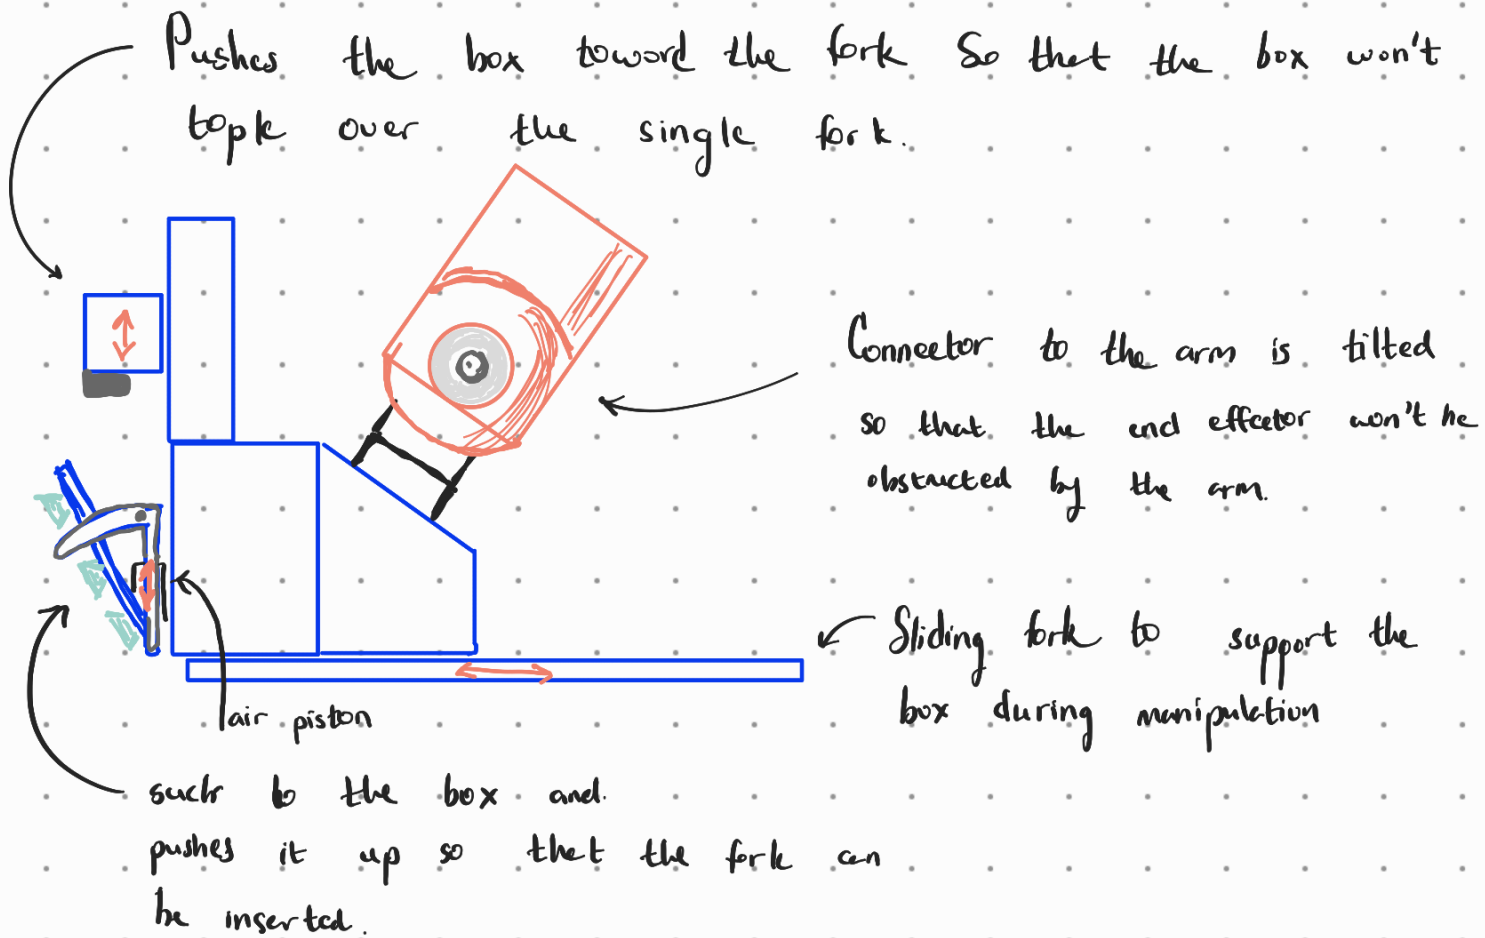 Pushes the box toword the fork So that the box won't
tople over the single fork.
Connector to the arm is tilted
so that the end effcetor won't be
obstructed by the arm.
Sliding fork to support the
box during manipulation
air piston
suchs to the box and.
pushes it up so that the fork can
be inserted.